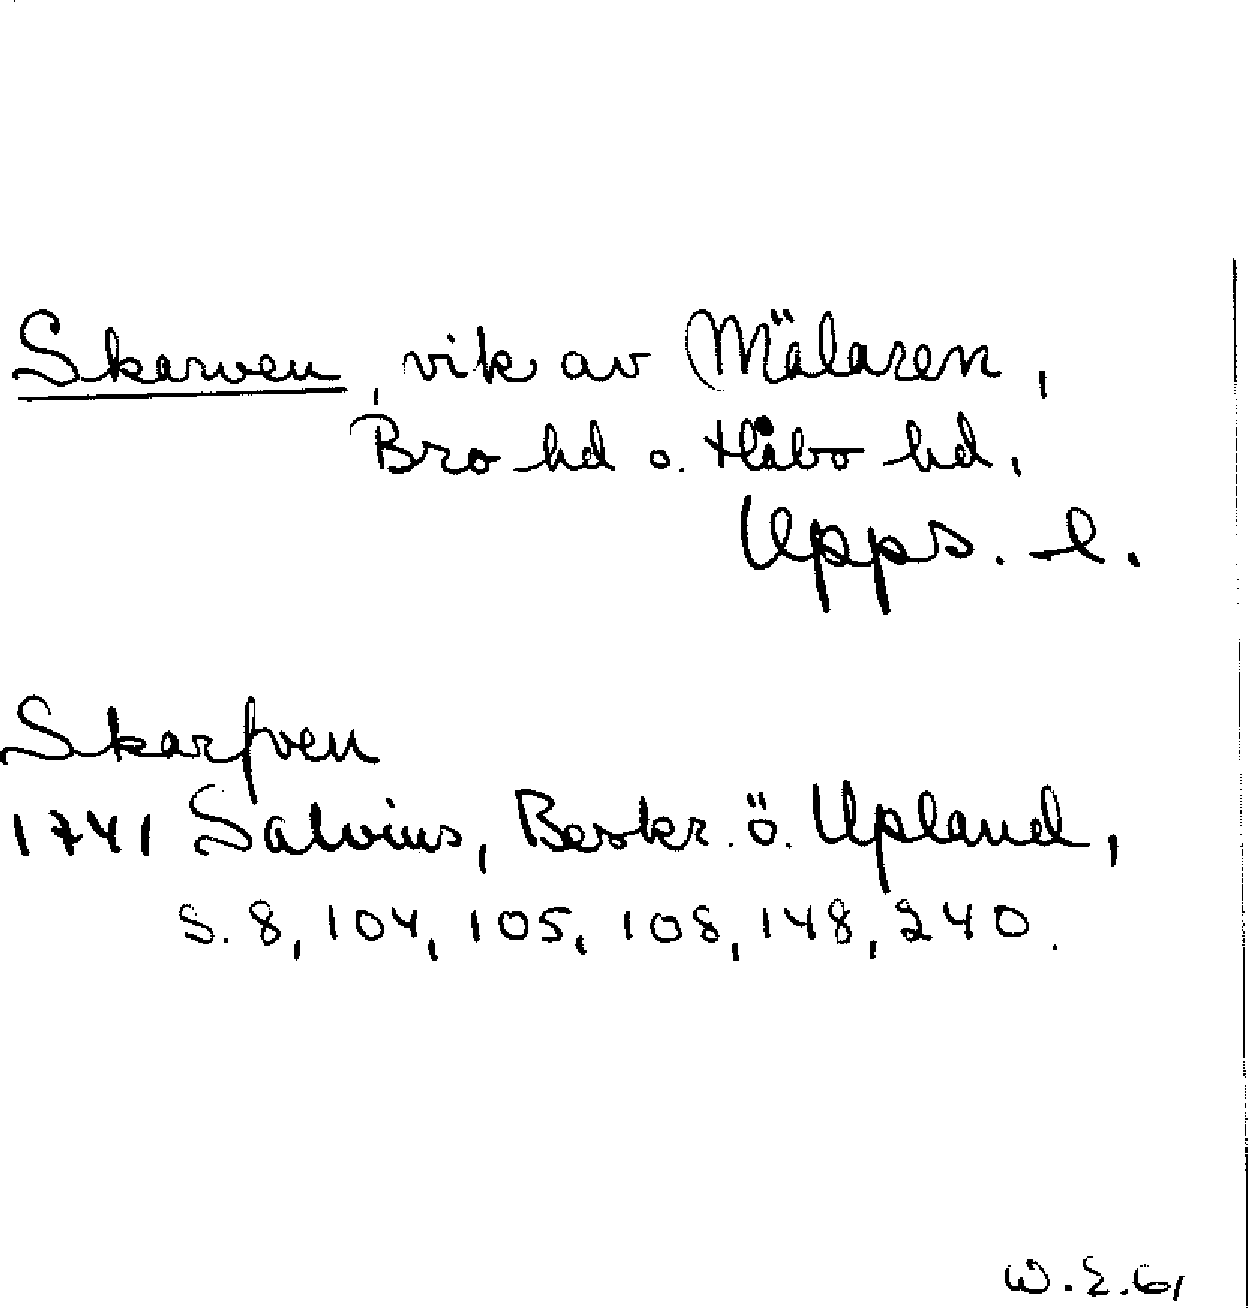 Skarven, vik av Mälaren,
Bro hd o. Håbo hd,
Upps. l.
Skarfven
1741 Salvius, Beskr. ö. Upland,
S. 8, 104, 105, 108, 148, 240.
W.E.61